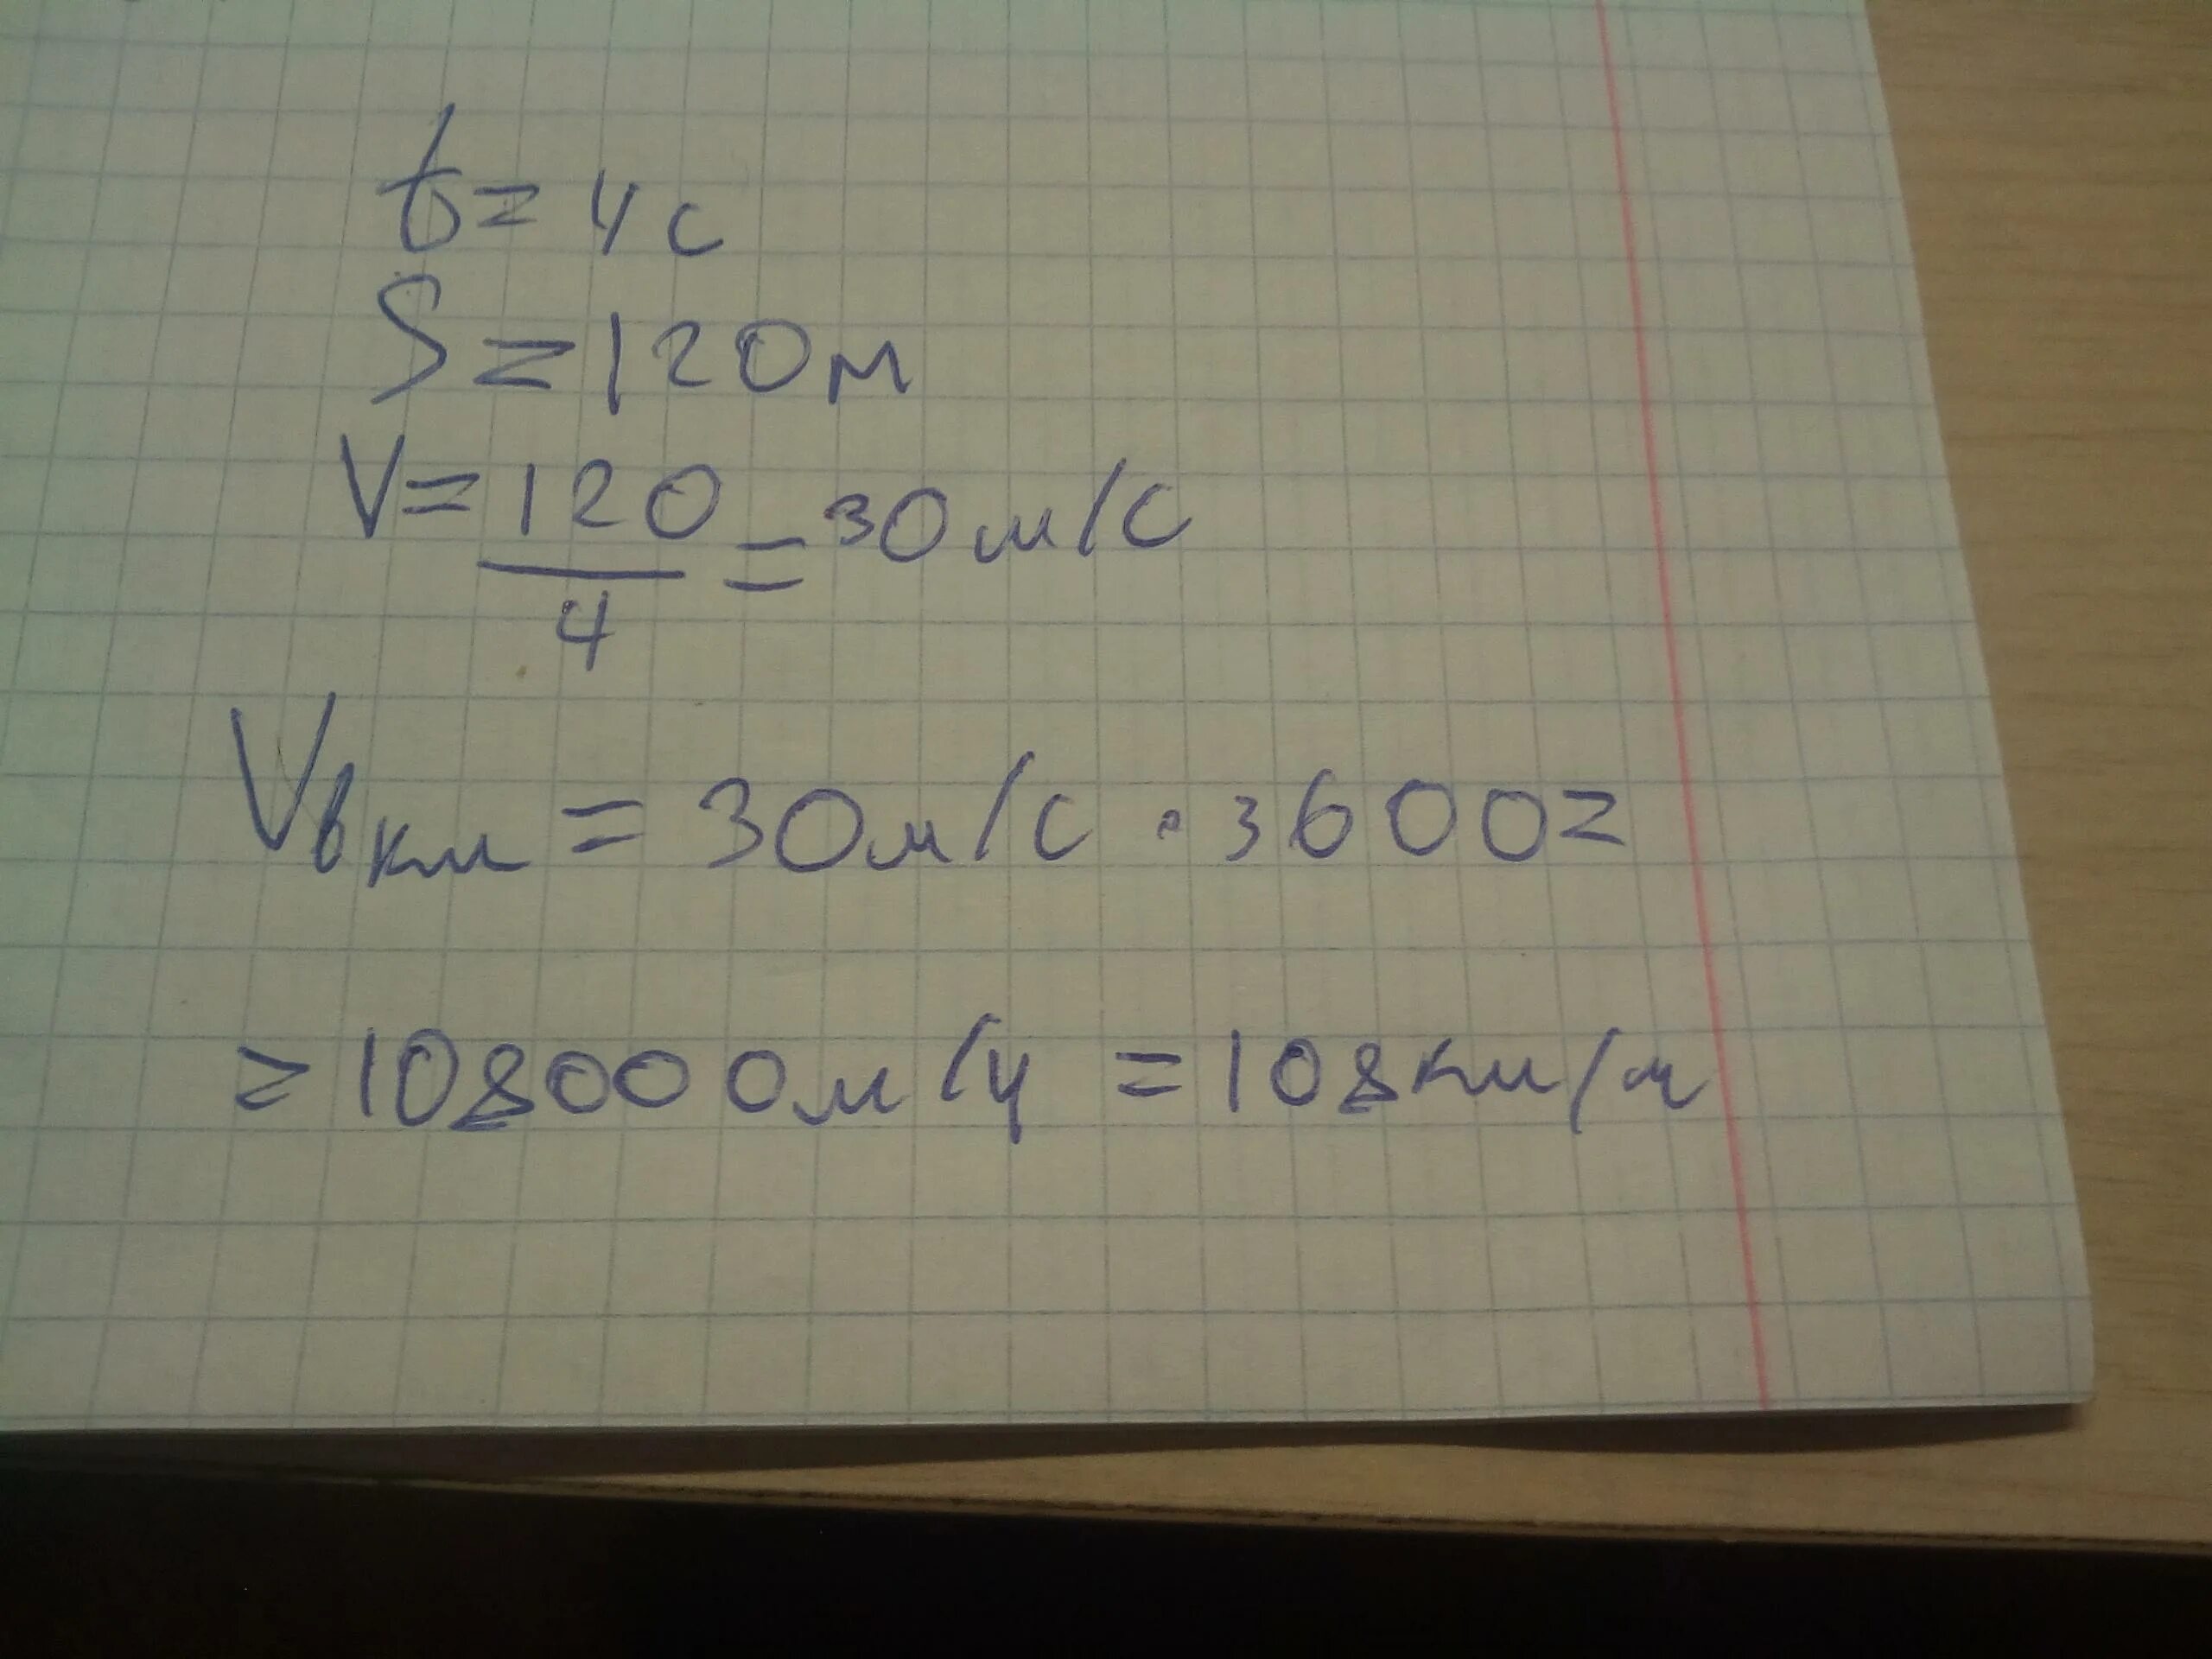 t = 4 с
S = 120 м
V = 120/4 = 30 м/с
V в км = 30 м/с · 3600 =
= 108000 м/ч = 108 км/ч